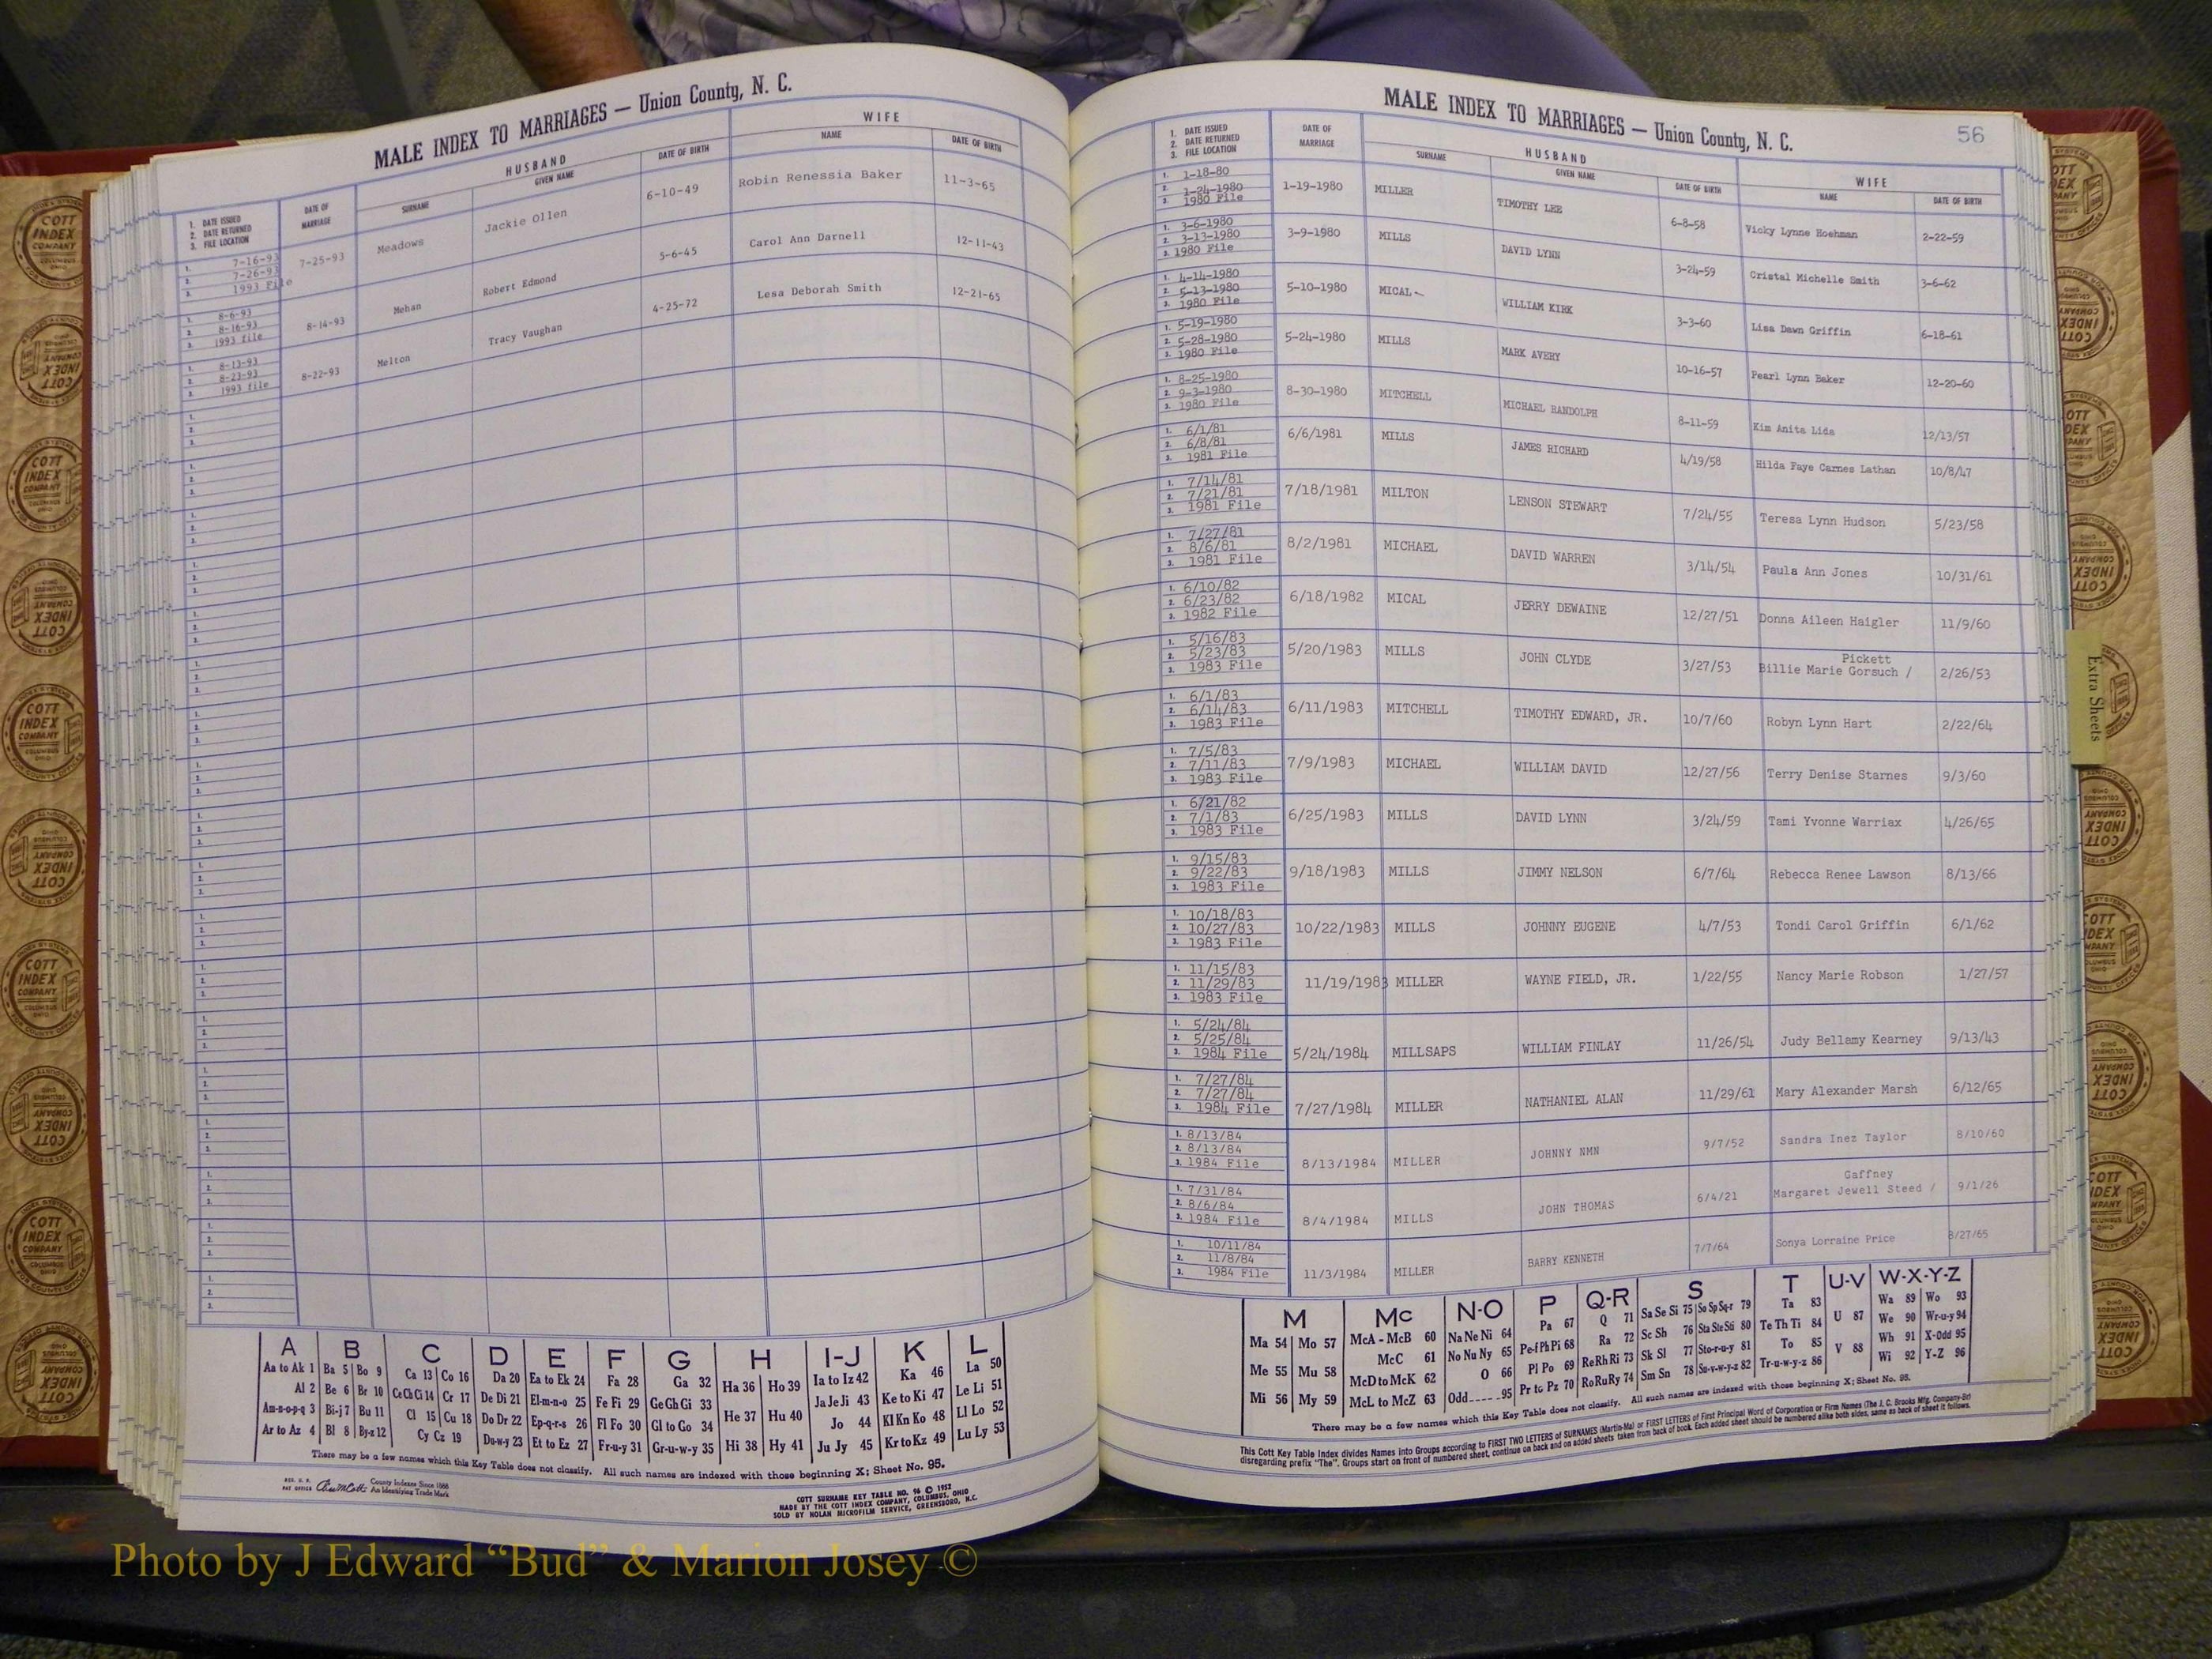 MALE INDEX TO MARRIAGES — Union County, N. C.
HUSBAND WIFE
1. DATE ISSUED
2. DATE RETURNED
3. FILE LOCATION
DATE OF MARRIAGE SURNAME GIVEN NAME DATE OF BIRTH NAME DATE OF BIRTH
1. 7-16-93
2. 7-26-93
3. 1993 File
7-25-93 Meadows Jackie Ollen 6-10-49 Robin Renessia Baker 11-3-65
1. 8-6-93
2. 8-16-93
3. 1993 file
8-14-93 Mehan Robert Edmond 5-6-45 Carol Ann Darnell 12-11-43
1. 8-13-93
2. 8-23-93
3. 1993 file
8-22-93 Melton Tracy Vaughan 4-25-72 Lesa Deborah Smith 12-21-65
A B C D E F G H I-J K L
Aa to Ak 1 Ba 5 Bo 9 Ca 13 Co 16 Da 20 Ea to Ek 24 Fa 28 Ga 32 Ha 36 Ho 39 Ia to Iz 42 Ka 46 La 50
Al 2 Be 6 Br 10 Ce Ch Ci 14 Cr 17 De Di 21 El-m-n-o 25 Fe Fi 29 Ge Gh Gi 33 He 37 Hu 40 Ja Je Ji 43 Ke to Ki 47 Le Li 51
Am-n-o-p-q 3 Bi-j 7 Bu 11 Cl 15 Cu 18 Do Dr 22 Ep-q-r-s 26 Fl Fo 30 Gl to Go 34 Hi 38 Hy 41 Jo 44 Kl Kn Ko 48 Ll Lo 52
Ar to Az 4 Bl 8 By-z 12 Cy Cz 19 Du-w-y 23 Et to Ez 27 Fr-u-y 31 Gr-u-w-y 35 Ju Jy 45 Kr to Kz 49 Lu Ly 53
There may be a few names which this Key Table does not classify. All such names are indexed with those beginning X; Sheet No. 95.
County Indexes Since 1888
An Identifying Trade Mark
COTT SURNAME KEY TABLE NO. 96 © 1952
MADE BY THE COTT INDEX COMPANY, COLUMBUS, OHIO
SOLD BY NOLAN MICROFILM SERVICE, GREENSBORO, N.C.
MALE INDEX TO MARRIAGES — Union County, N. C.
56
HUSBAND WIFE
1. DATE ISSUED
2. DATE RETURNED
3. FILE LOCATION
DATE OF MARRIAGE SURNAME GIVEN NAME DATE OF BIRTH NAME DATE OF BIRTH
1. 1-18-80
2. 1-24-1980
3. 1980 File
1-19-1980 MILLER TIMOTHY LEE 6-8-58 Vicky Lynne Hoehman 2-22-59
1. 3-6-1980
2. 3-13-1980
3. 1980 File
3-9-1980 MILLS DAVID LYNN 3-24-59 Cristal Michelle Smith 3-6-62
1. 4-14-1980
2. 5-13-1980
3. 1980 File
5-10-1980 MICAL WILLIAM KIRK 3-3-60 Lisa Dawn Griffin 6-18-61
1. 5-19-1980
2. 5-28-1980
3. 1980 File
5-24-1980 MILLS MARK AVERY 10-16-57 Pearl Lynn Baker 12-20-60
1. 8-25-1980
2. 9-3-1980
3. 1980 File
8-30-1980 MITCHELL MICHAEL RANDOLPH 8-11-59 Kim Anita Lide 12/13/57
1. 6/1/81
2. 6/8/81
3. 1981 File
6/6/1981 MILLS JAMES RICHARD 4/19/58 Hilda Faye Carnes Lathan 10/8/47
1. 7/14/81
2. 7/21/81
3. 1981 File
7/18/1981 MILTON LENSON STEWART 7/24/55 Teresa Lynn Hudson 5/23/58
1. 7/27/81
2. 8/6/81
3. 1981 File
8/2/1981 MICHAEL DAVID WARREN 3/14/54 Paula Ann Jones 10/31/61
1. 6/10/82
2. 6/23/82
3. 1982 File
6/18/1982 MICAL JERRY DEWAINE 12/27/51 Donna Aileen Haigler 11/9/60
1. 5/16/83
2. 5/23/83
3. 1983 File
Pickett
5/20/1983 MILLS JOHN CLYDE 3/27/53 Billie Marie Gorsuch / 2/26/53
1. 6/1/83
2. 6/14/83
3. 1983 File
6/11/1983 MITCHELL TIMOTHY EDWARD, JR. 10/7/60 Robyn Lynn Hart 2/22/64
1. 7/5/83
2. 7/11/83
3. 1983 File
7/9/1983 MICHAEL WILLIAM DAVID 12/27/56 Terry Denise Starnes 9/3/60
1. 6/21/82
2. 7/1/83
3. 1983 File
6/25/1983 MILLS DAVID LYNN 3/24/59 Tami Yvonne Warriax 4/26/65
1. 9/15/83
2. 9/22/83
3. 1983 File
9/18/1983 MILLS JIMMY NELSON 6/7/64 Rebecca Renee Lawson 8/13/66
1. 10/18/83
2. 10/27/83
3. 1983 File
10/22/1983 MILLS JOHNNY EUGENE 4/7/53 Tondi Carol Griffin 6/1/62
1. 11/15/83
2. 11/29/83
3. 1983 File
11/19/1983 MILLER WAYNE FIELD, JR. 1/22/55 Nancy Marie Robson 1/27/57
1. 5/24/84
2. 5/25/84
3. 1984 File
5/24/1984 MILLSAPS WILLIAM FINLAY 11/26/54 Judy Bellamy Kearney 9/13/43
1. 7/27/84
2. 7/27/84
3. 1984 File
7/27/1984 MILLER NATHANIEL ALAN 11/29/61 Mary Alexander Marsh 6/12/65
1. 8/13/84
2. 8/13/84
3. 1984 File
8/13/1984 MILLER JOHNNY NMN 9/7/52 Sandra Inez Taylor 8/10/60
1. 7/31/84
2. 8/6/84
3. 1984 File
Gaffney
8/4/1984 MILLS JOHN THOMAS 6/4/21 Margaret Jewell Steed / 9/1/26
1. 10/11/84
2. 11/8/84
3. 1984 File
11/3/1984 MILLER BARRY KENNETH 7/7/64 Sonya Lorraine Price 8/27/65
M Mc N-O P Q-R S T U-V W-X-Y-Z
Ma 54 Mo 57 McA - McB 60 Na Ne Ni 64 Pa 67 Q 71 Sa Se Si 75 So Sp Sq-r 79 Ta 83 U 87 Wa 89 Wo 93
Me 55 Mu 58 McC 61 No Nu Ny 65 Pe-f Ph Pi 68 Ra 72 Sc Sh 76 Sta Ste Sti 80 Te Th Ti 84 V 88 We 90 Wr-u-y 94
Mi 56 My 59 McD to McK 62 O 66 Pl Po 69 Re Rh Ri 73 Sk Sl 77 Sto-r-u-y 81 To 85 Wh 91 X-Odd 95
McL to McZ 63 Odd 95 Pr to Pz 70 Ro Ru Ry 74 Sm Sn 78 Su-v-w-y-z 82 Tr-u-w-y-z 86 Wi 92 Y-Z 96
There may be a few names which this Key Table does not classify. All such names are indexed with those beginning X; Sheet No. 95.
This Cott Key Table Index divides Names into Groups according to FIRST TWO LETTERS of SURNAMES (Martin-Ma) or FIRST LETTERS of First Principal Word of Corporation or Firm Names (The J. C. Brooks Mfg. Company-Br)
disregarding prefix "The". Groups start on front of numbered sheet, continue on back and on added sheets taken from back of book. Each added sheet should be numbered alike both sides, same as back of sheet it follows.
Extra Sheets
COTT INDEX COMPANY
COLUMBUS OHIO
Photo by J Edward “Bud” & Marion Josey ©